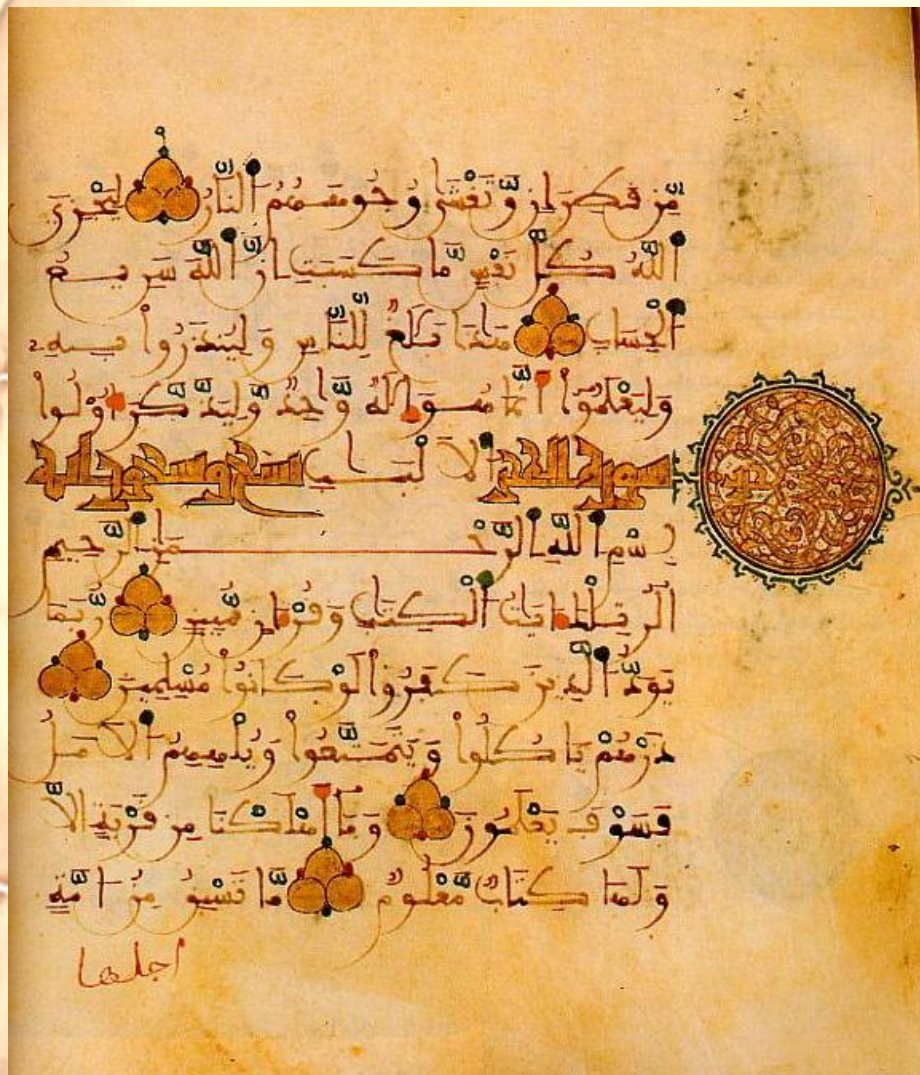 مِّن قَطِرَانٍ وَّتَغْشَىٰ وُجُوهَهُمُ النَّارُ لِيَجْزِيَ
اللَّهُ كُلَّ نَفْسٍ مَّا كَسَبَتِ اِنَّ اللَّهَ سَرِيعُ
الْحِسَابِ هَٰذَا بَلَٰغٌ لِّلنَّاسِ وَلِيُنذَرُوا بِهِ
وَلِيَعْلَمُوا أَنَّمَا هُوَ إِلَٰهٌ وَّاحِدٌ وَّلِيَذَّكَّرَ أُوْلُوا
سورة الحجر الالْبَٰبِ تسع وتسعون اية
بِسْمِ اللَّهِ الرَّحْمَٰنِ الرَّحِيمِ
الر تِلْكَ ءَايَٰتُ الْكِتَٰبِ وَقُرْءَانٍ مُّبِينٍ رُّبَمَا
يَوَدُّ الَّذِينَ كَفَرُوا لَوْ كَانُوا مُسْلِمِينَ
ذَرْهُمْ يَاكُلُوا وَيَتَمَتَّعُوا وَيُلْهِهِمُ الاَمَلُ
فَسَوْفَ يَعْلَمُونَ وَمَا أَهْلَكْنَا مِن قَرْيَةٍ اِلاَّ
وَلَهَا كِتَابٌ مَّعْلُومٌ مَّا تَسْبِقُ مِنُ امَّةٍ
اجلها